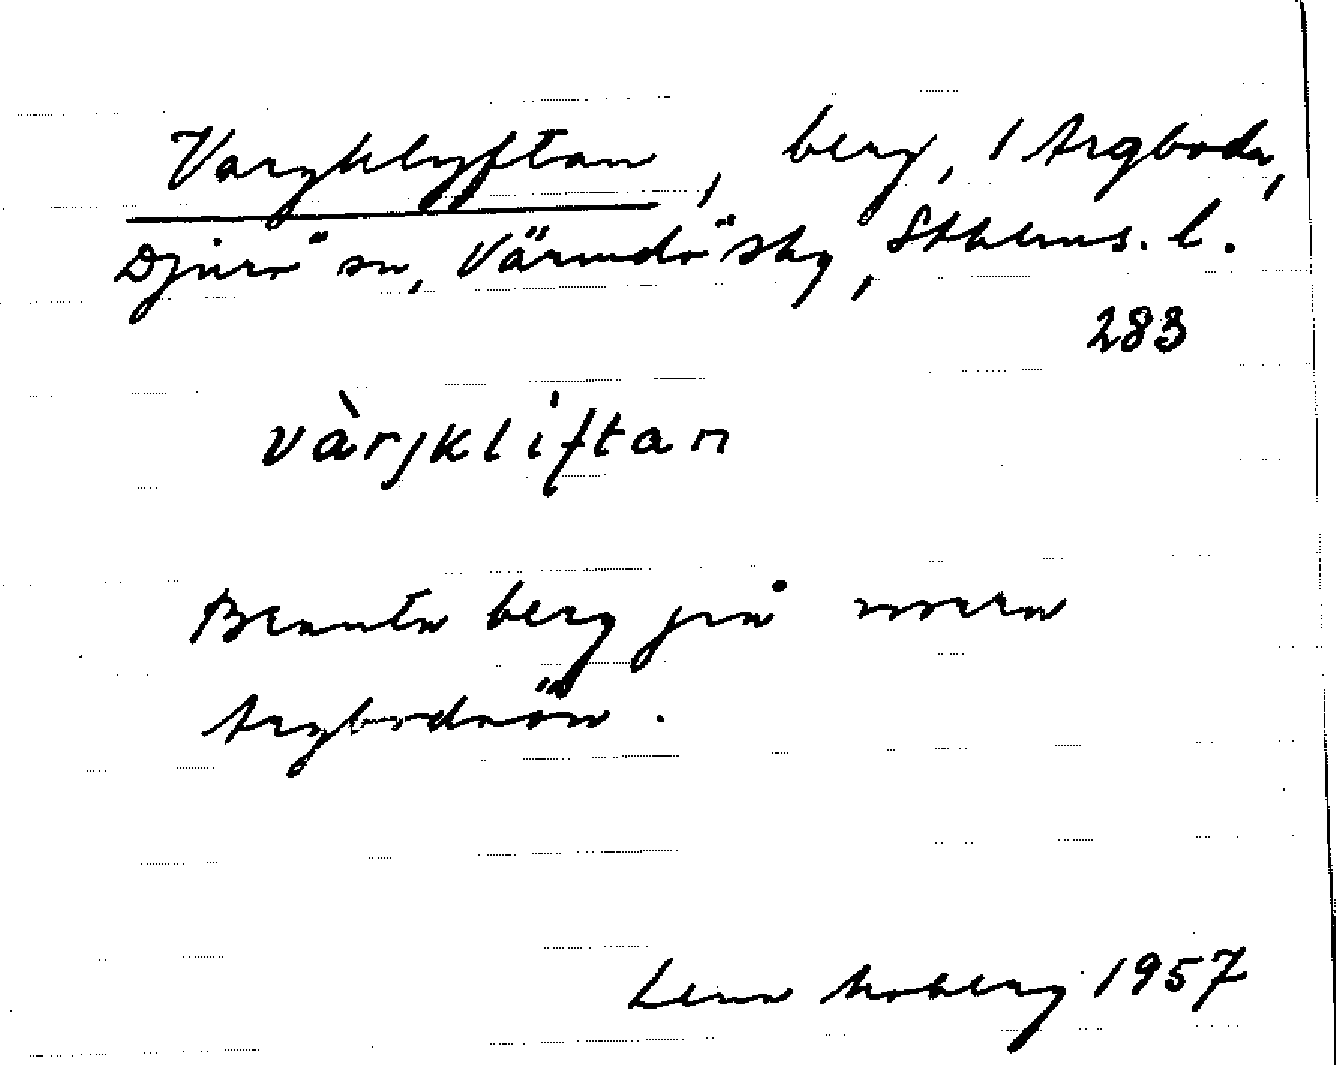 Vargklyftan, berg, 1 Argboda,
Djurö sn, Värmdö skg, Sthlms. l.
283
vàrjkliftan
Branta berg på norra
Argbodaön.
Lena Moberg 1957